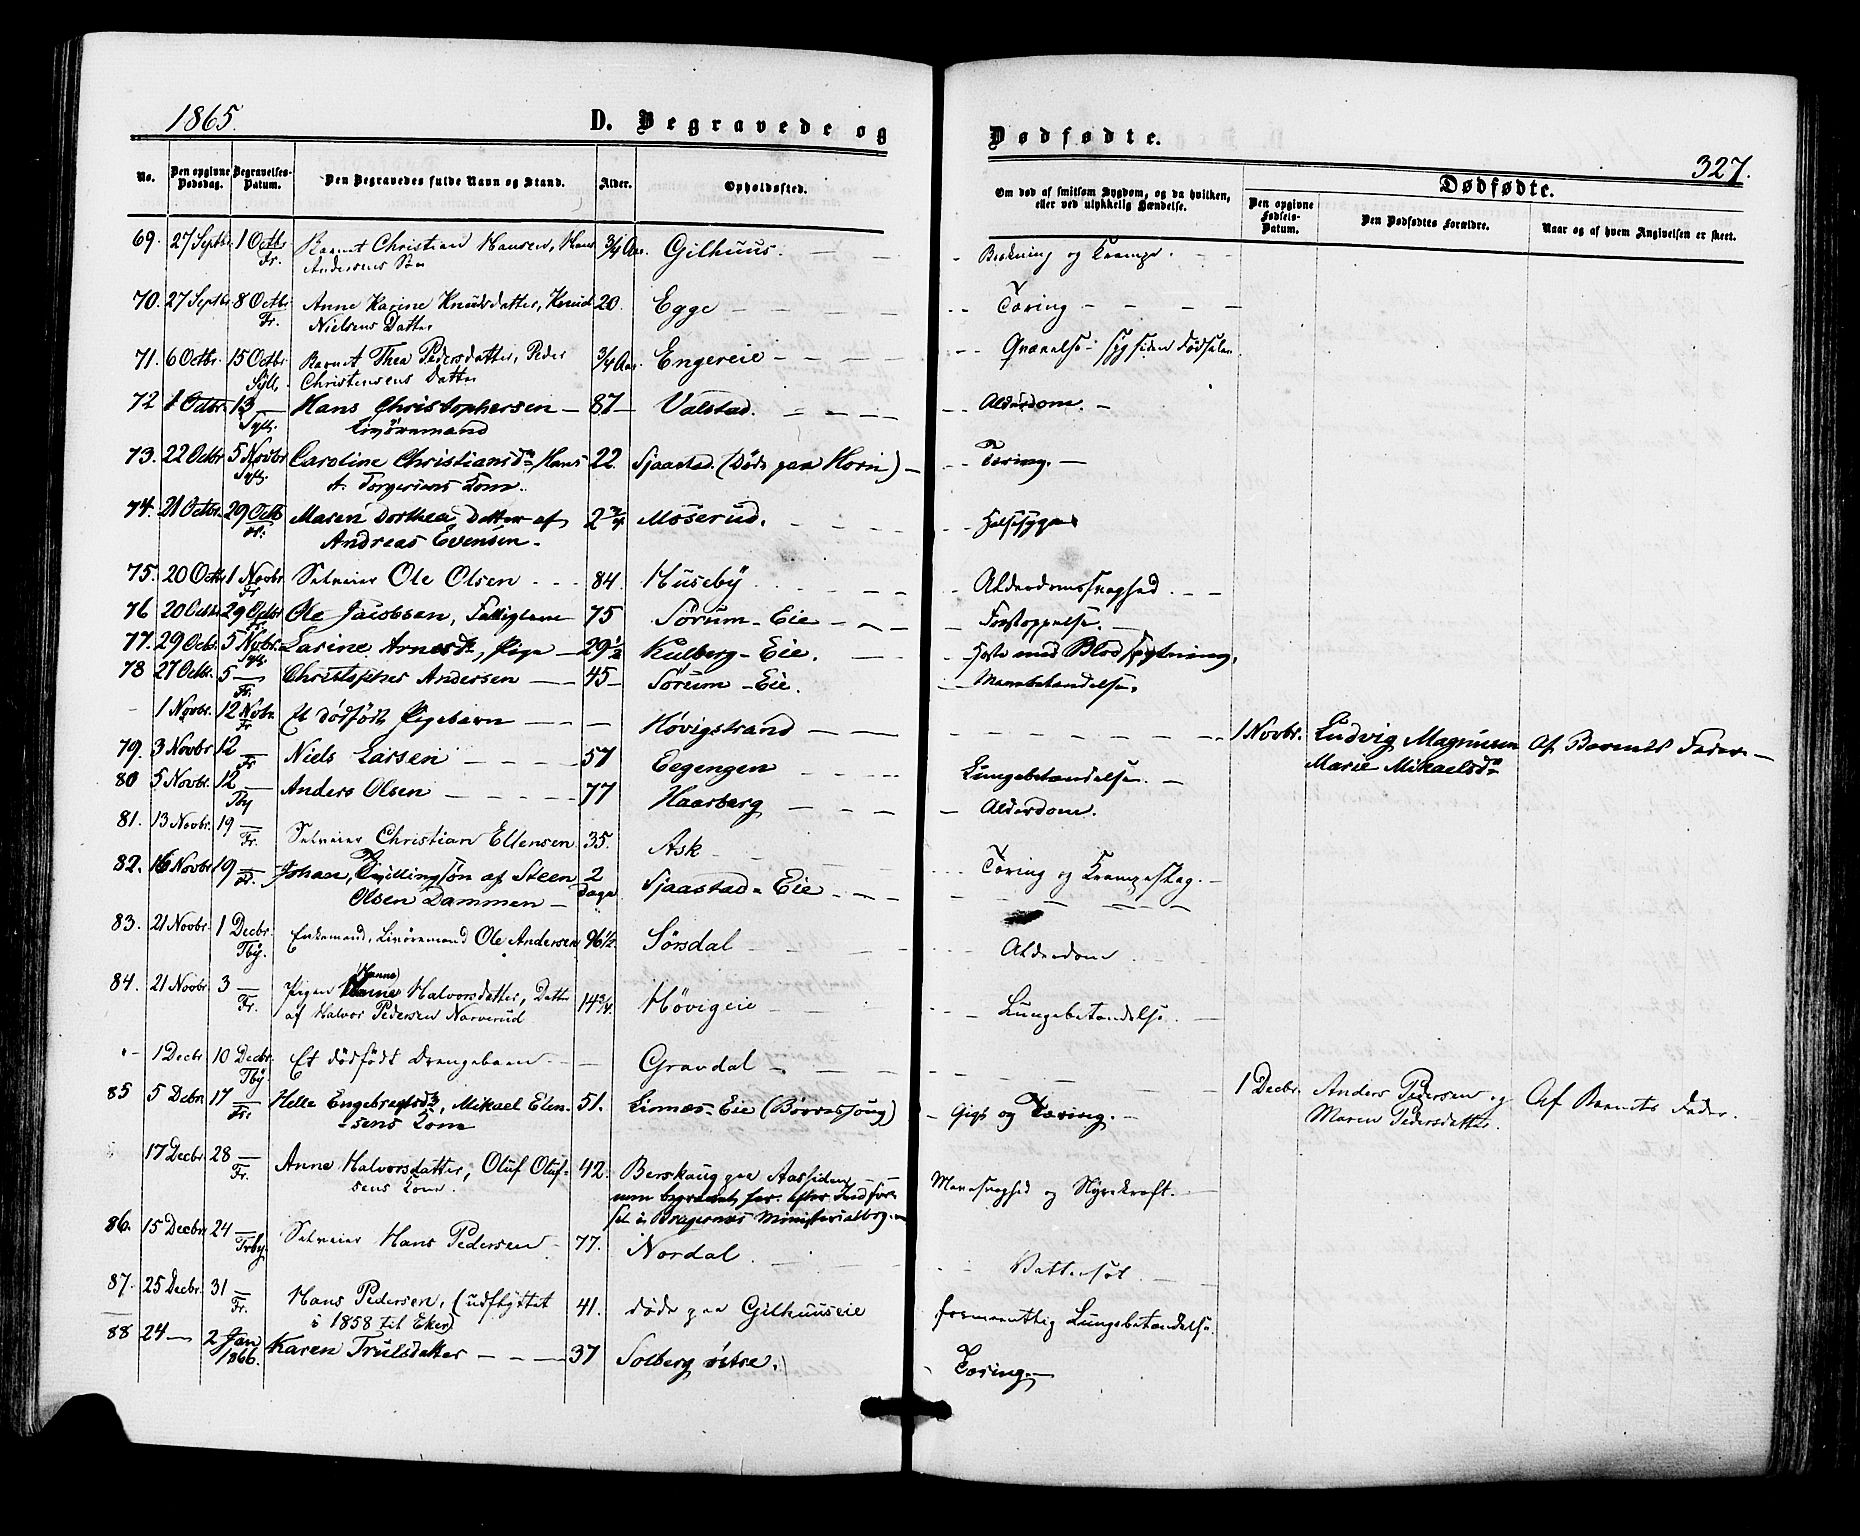 1865.
D. Begravede og
No.
Den opgivne Dødsdag.
Begravelses-Datum.
Den Begravedes fulde Navn og Stand.
Alder.
Opholdssted.
69. 27 Septbr 1 Octbr Barnet Christian Hansen, Hans 3/4 Aar. Gilhuus.
Fr. Andersens Søn
70. 27 Septbr 8 Octbr Anne Karine Knudsdatter, Knud 20. Egge
Fr. Nielsens Datter
71. 6 Octbr. 15 Octbr Barnet Thea Pedersdatter, Peder 3/4 Aar. Engereie
Syll. Christensens Datter
72 1 Octbr. 13 Hans Christophersen 87 Valstad.
Syll. Livöremand
73. 22 Octbr 5 Novbr Caroline Christiansd. Hans 22. Sjaastad. (Døde paa Horn)
Syll. A. Torgersens Kone.
74. 21 Octbr. 29 Octb Maren Dorthea, Datter af 2 Möserud.
Fr. Andreas Evensen
75. 20 Octbr 1 Novbr Selveier Ole Olsen 84. Huseby
Fr
76 20 Octbr 29 Octbr Ole Jacobsen, Fattiglem 75 Sörum-Eie
Fr.
77. 29 Octb. 5 Novbr. Larine Arnesdr, Pige 29 1/2 Kulberg-Eie.
Sylt.
78 27 Octbr. 5 Christopher Andersen 45 Sörum-Eie.
Fr.
1 Novbr. 12 Novbr. Et dödfödt Pigebarn Hövigstrand
Fr
79. 3 Novbr 12 Niels Larsen 57 Eegengen
Fr
80 5 Novbr. 12 Anders Olsen 77 Haarberg
Tby
81. 13 Novbr. 19 Selveier Christian Ellensen 35. Ask
Fr.
82. 16 Novbr 19 Johan, Tvillingsön af Steen 2 Sjaastad-Eie
Fr. Olsen Dammen Dage
83. 21 Novbr. 1 Decbr. Enkemand, Livöremand Ole Andersen 96 1/2. Sörsdal
Tby.
84. 21 Novbr 3 Pigen Hanne Halvorsdatter, Datter 14 3/4. Hövigeie
Hanne
Fr. af Halvor Pedersen Narverud
1 Decbr. 10 Decbr. Et dödfödt Drengebarn Gravdal
Tby.
85 5 Debr. 17 Helle Engebregtsdr, Mikael Elen- 51. Linnæs-Eie (Börressöng)
Fr. sens Kone
17 Decbr. 28 Anne Halvorsdatter, Oluf Oluf- 42. Berskaug paa Aassiden
Fr. sens Kone. som begravet her. efter Indför-
sel i Bragernæs Ministerialbog.
86. 15 Decbr 24 Selveier Hans Pedersen 77. Nordal
Tby.
87. 25 Decbr. 31 Hans Pedersen, (udflyttet 41. døde paa Gilhuuseie
Fr. i 1858 til Eker)
88 24 2 Jan 1866. Karen Trulsdatter 37 Solberg östre.
Dødfødte.
327.
Om død af smitsom Sygdom, og da hvilken,
eller ved ulykkelig Hændelse.
Dødfødte.
Den opgivne Fødsels-Datum.
Den Dødfødtes Forældre.
Naar og af hvem Angivelsen er skeet.
og Krampe.
Tæring
syg siden Födselen
Alderdom.
Tæring.
Halssyge
Alderdomssvaghed.
Forstoppelse.
Hoste med Blodspytning.
Mavebetændelse.
1 Novbr. Ludvig Magnusen Af Barnets Fader
Marie Mikaelsdr
Lungebetændelse.
Alderdom.
Tæring og Krampeslag.
Alderdom
Lungebetændelse.
1 Decbr. Anders Pedersen og Af Barnets Fader.
Maren Pedersdatter.
Gigt og Tæring.
Mavesvaghed og Nyrekræft.
Vattersot.
formeentlig Lungebetændelse.
Tæring.